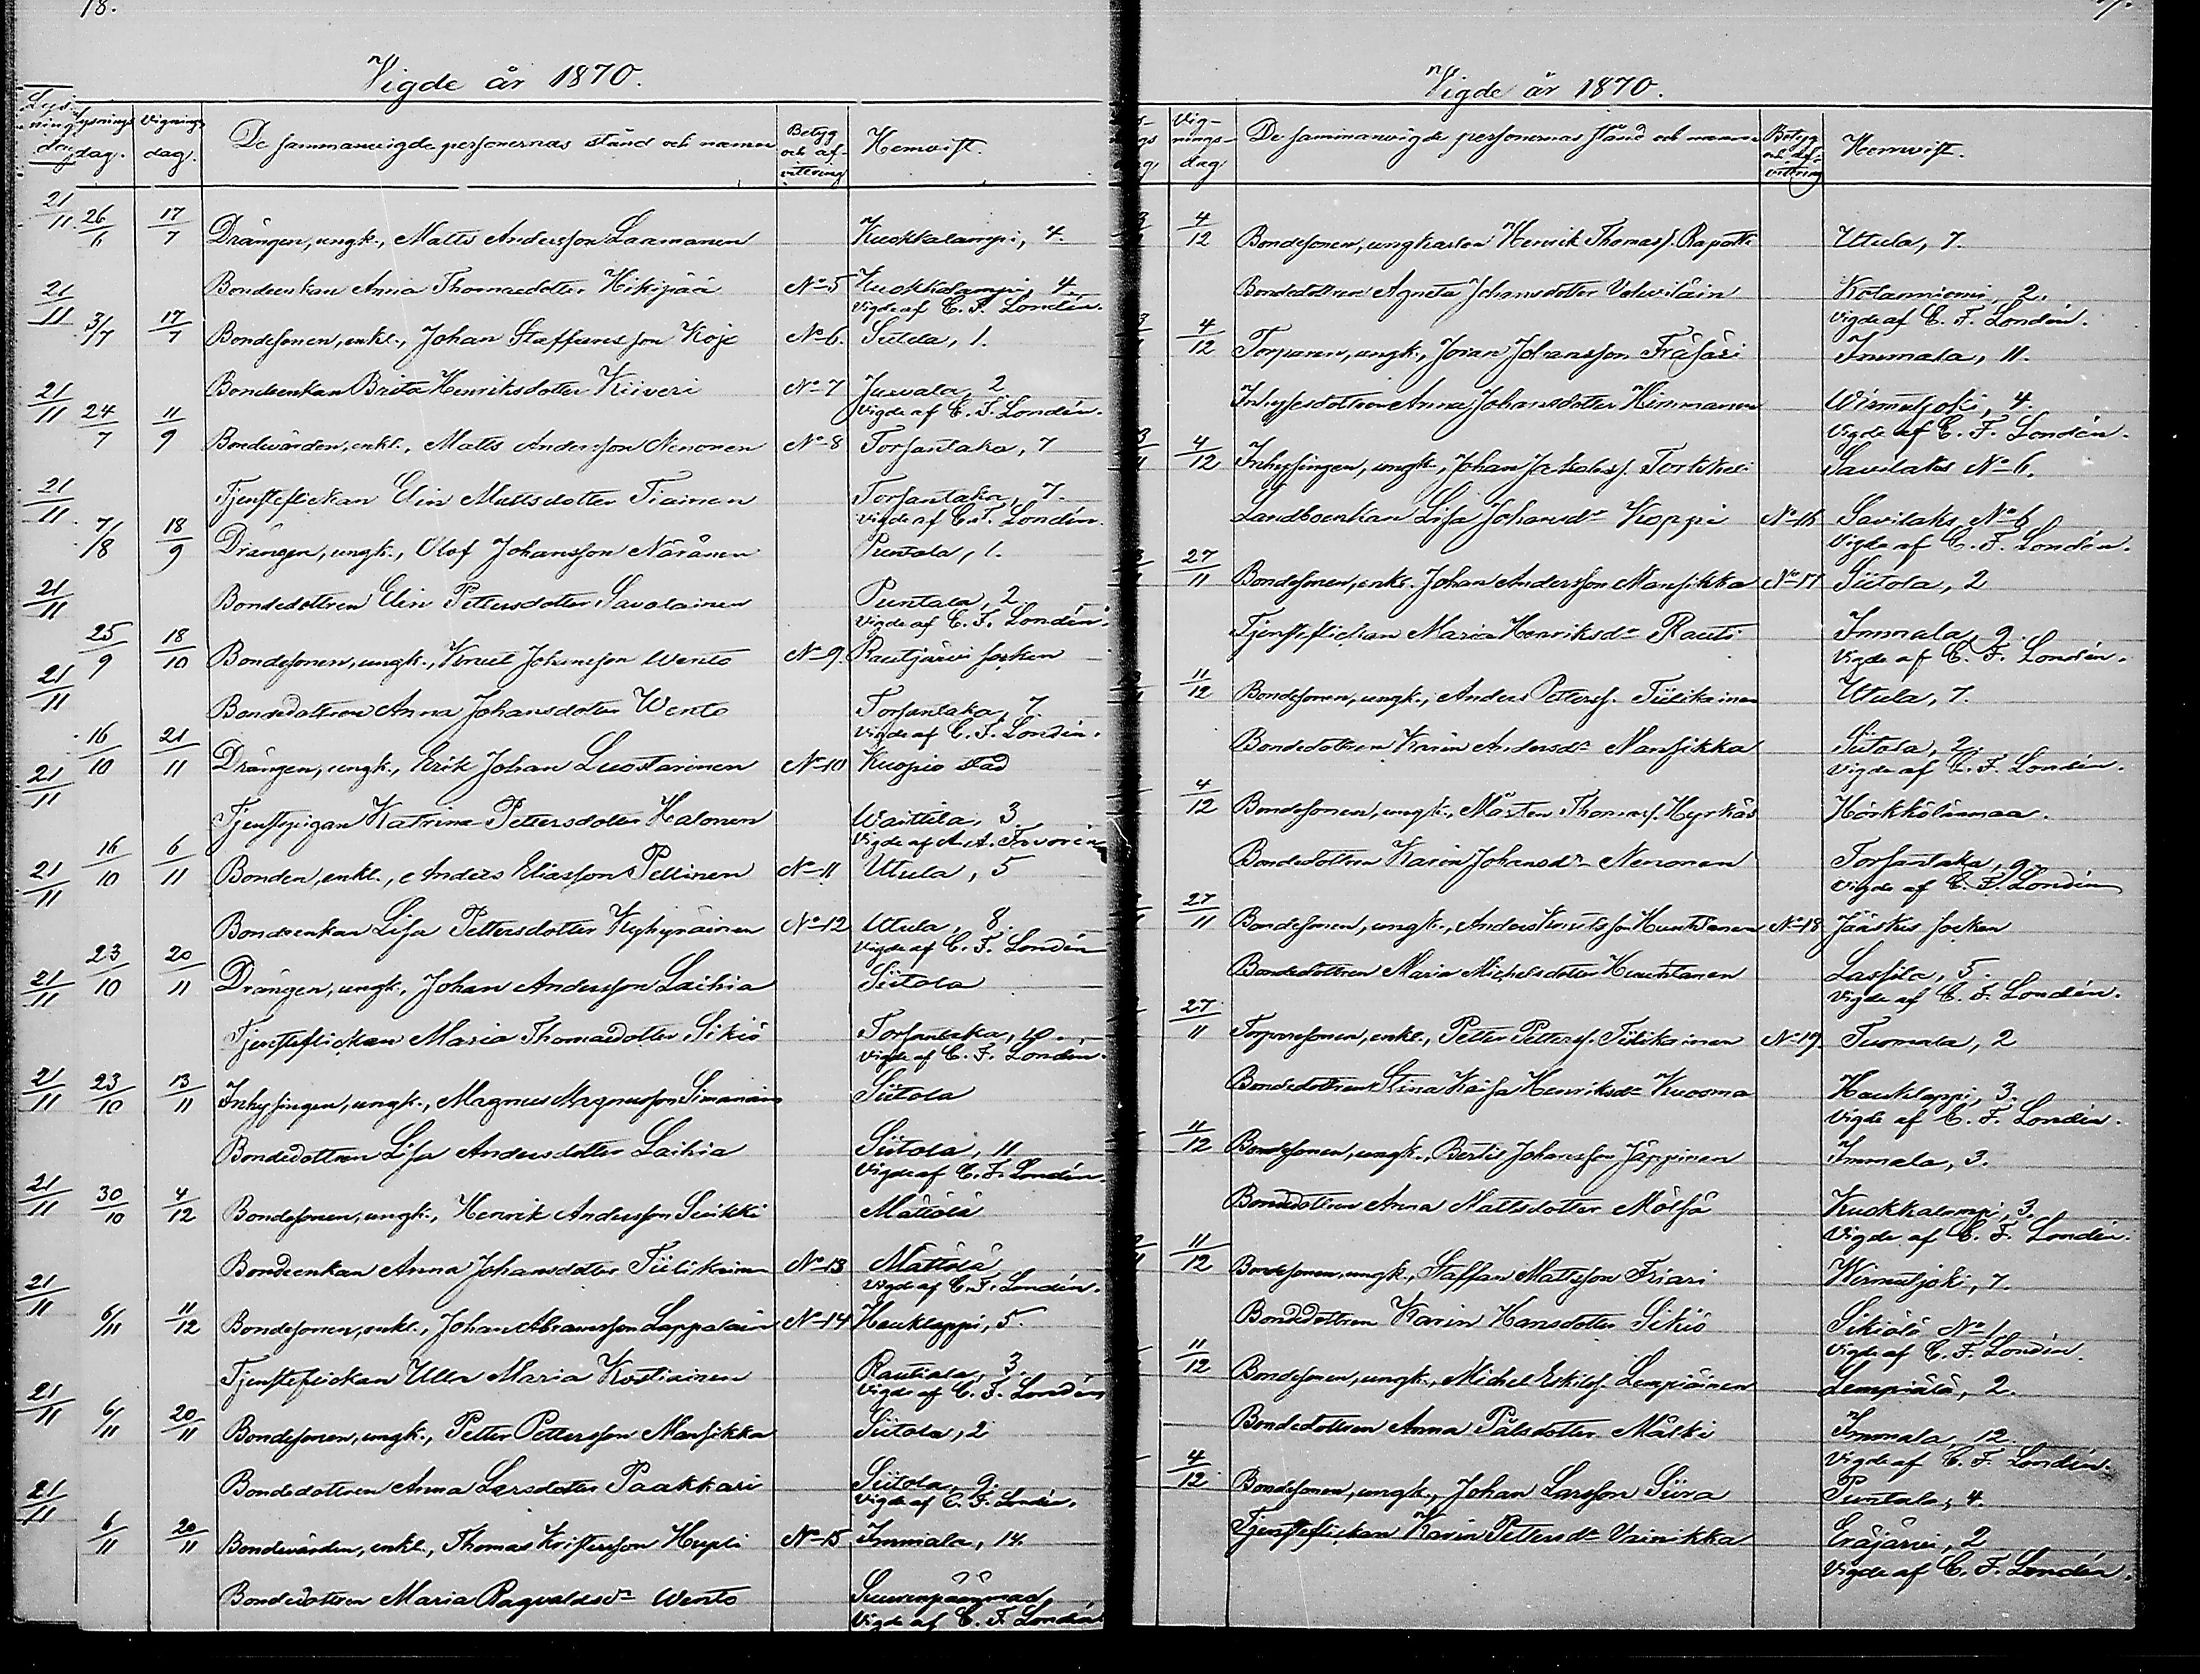 18.
Vigde år 1870.
Lysnings dag. Vignings dag. De sammanvigde personernas stånd och namn Betyg och afvittring Hemvist.
26/6 17/7 Drängen, ungk., Matts Andersson Laamanen Kuokkalampi, 4.
Bondeenkan Anna Thomasdotter Hikipää No 5 Kuokkalampi, 4
Vigde af C. F. Londén.
3/7 17/7 Bondesonen, enkl., Johan Staffansson Kojo No 6. Siitola, 1.
Bondeenkan Brita Henriksdotter Kiiveri No 7 Juvala, 2
Vigde af C. F. Londén.
24/7 11/9 Bondevärden, enkl., Matts Andersson Nenonen No 8 Torsantaka, 7
Tjensteflickan Elin Mattsdotter Tiainen Torsantaka, 7.
Vigde af C. F. Londén.
7/8 18/9 Drängen, ungk., Olof Johansson Näränen Puntala, 1.
Bondedottren Elin Pettersdotter Savolainen Puntala, 2
Vigde af C. F. Londén.
25/9 18/10 Bondesonen, ungk., Knut Johansson Wento No 9. Rautjärvi socken
Bondedottren Anna Johansdotter Wento Torsantaka, 7.
Vigde af C. F. Londén.
16/10 21/11 Drängen, ungk., Erik Johan Luostarinen No 10 Kuopio stad
Tjenstepigan Katrina Pettersdotter Halonen Waittila, 3
Vigde af A. A. Favorin
16/10 6/11 Bonden, enkl., Anders Eliasson Pellinen No 11 Utula, 5
Bondeenkan Lisa Pettersdotter Kyhyräinen No 12 Utula, 8.
Vigde af C. F. Londén
23/10 20/11 Drängen, ungk., Johan Andersson Laihia Siitola
Tjensteflickan Maria Thomasdotter Sikiö Torsantaka, 10
Vigde af C. F. Londén.
23/10 13/11 Inhysingen, ungk., Magnus Magnusson Simanain Siitola
Bondedottren Lisa Andersdotter Laihia Siitola, 11
Vigde af C. F. Londén.
30/10 4/12 Bondesonen, ungk., Henrik Andersson Suikki Mättölä
Bondeenkan Anna Johansdotter Tiilikain No 13 Mättölä
Vigde af C. F. Londén.
6/11 11/12 Bondesonen, enkl., Johan Abramsson Lappalain No 14 Hauklappi, 5.
Tjensteflickan Ulla Maria Kostiainen Rautiala, 3.
Vigde af C. F. Londén
6/11 20/11 Bondesonen, ungk., Petter Pettersson Mansikka Siitola, 2
Bondedottren Anna Larsdotter Paakkari Siitola, 9.
Vigde af C. F. Londén.
6/11 20/11 Bondevärden, enkl., Thomas Kristersson Hupli No 15 Immala, 14.
Bondedottren Maria Ragvaldsdr Wento
Vigde af C. F. Londén
Vigde år 1870.
Vignings dag De sammanvigde personernas stånd och namn Betyg och afvittring Hemvist.
4/12 Bondesonen, ungkarlen Henrik Thomass. Raportti Utula, 7.
Bondedottren Agneta Johansdotter Kotaniemi, 2.
Vigde af C. F. Londén.
4/12 Torparen, ungk., Johansson Immala, 11.
Inhysesdottren Anna Johansdotter Himmanen Wirmutjoki, 4.
Vigde af C. F. Londén.
4/12 Inhysingen, ungk., Johan Jakobss. Torkkeli Savilaks No 6.
Landboenkan Lisa Johansdr Koppi No 16 Savilaks, No 6
Vigde af C. F. Londén.
27/11 Bondesonen, enkl. Johan Andersson Mansikka No 17 Siitola, 2
Tjensteflickan Maria Henriksdr Rauti Immala, 9.
Vigde af C. F. Londén.
11/12 Bondesonen, ungk., Anders Petterss. Tiilikainen Utula, 7.
Bondedottren Karin Andersdr Mansikka Siitola, 2.
Vigde af C. F. Londén.
4/12 Bondesonen, ungk., Mårten Thomass. Hyrkäs Härskölänmaa.
Bondedottren Karin Johansdr Nenonen Torsantaka, 9.
Vigde af C. F. Londén
27/11 Bondesonen, ungk., Anders Knutsson Kuntonen No 18 Jääskis socken
Bondedottren Maria Michelsdotter Lassila, 5.
Vigde af C. F. Londén.
27/11 Torparesonen, enkl., Petter Petterss. Tiilikainen No 19. Tuomala, 2
Bondedottren Stina Kaisa Henriksdr Kuosma Hauklappi, 3.
Vigde af C. F. Londén.
11/12 Bondesonen, ungk., Bertil Johansson Jäppinen Immala, 3.
Bondedottren Anna Mattsdotter Mölsä Kuokkalampi, 3.
Vigde af C. F. Londén.
11/12 Bondesonen, ungk., Staffan Mattsson Friari Wirmutjoki, 7.
Bondedottren Karin Hansdotter Sikiö Sikiölä No 1
Vigde af C. F. Londén.
11/12 Bondesonen, ungk., Michel Eskilss. Lempiäinen Lempiälä, 2.
Bondedottren Anna Pålsdotter Mälki Immala, 12.
Vigde af C. F. Londén.
4/12 Bondesonen, ungk., Johan Larsson Siira Puntala, 4.
Tjensteflickan Karin Pettersdr Vainikka Eräjärvi, 2
Vigde af C. F. Londén.